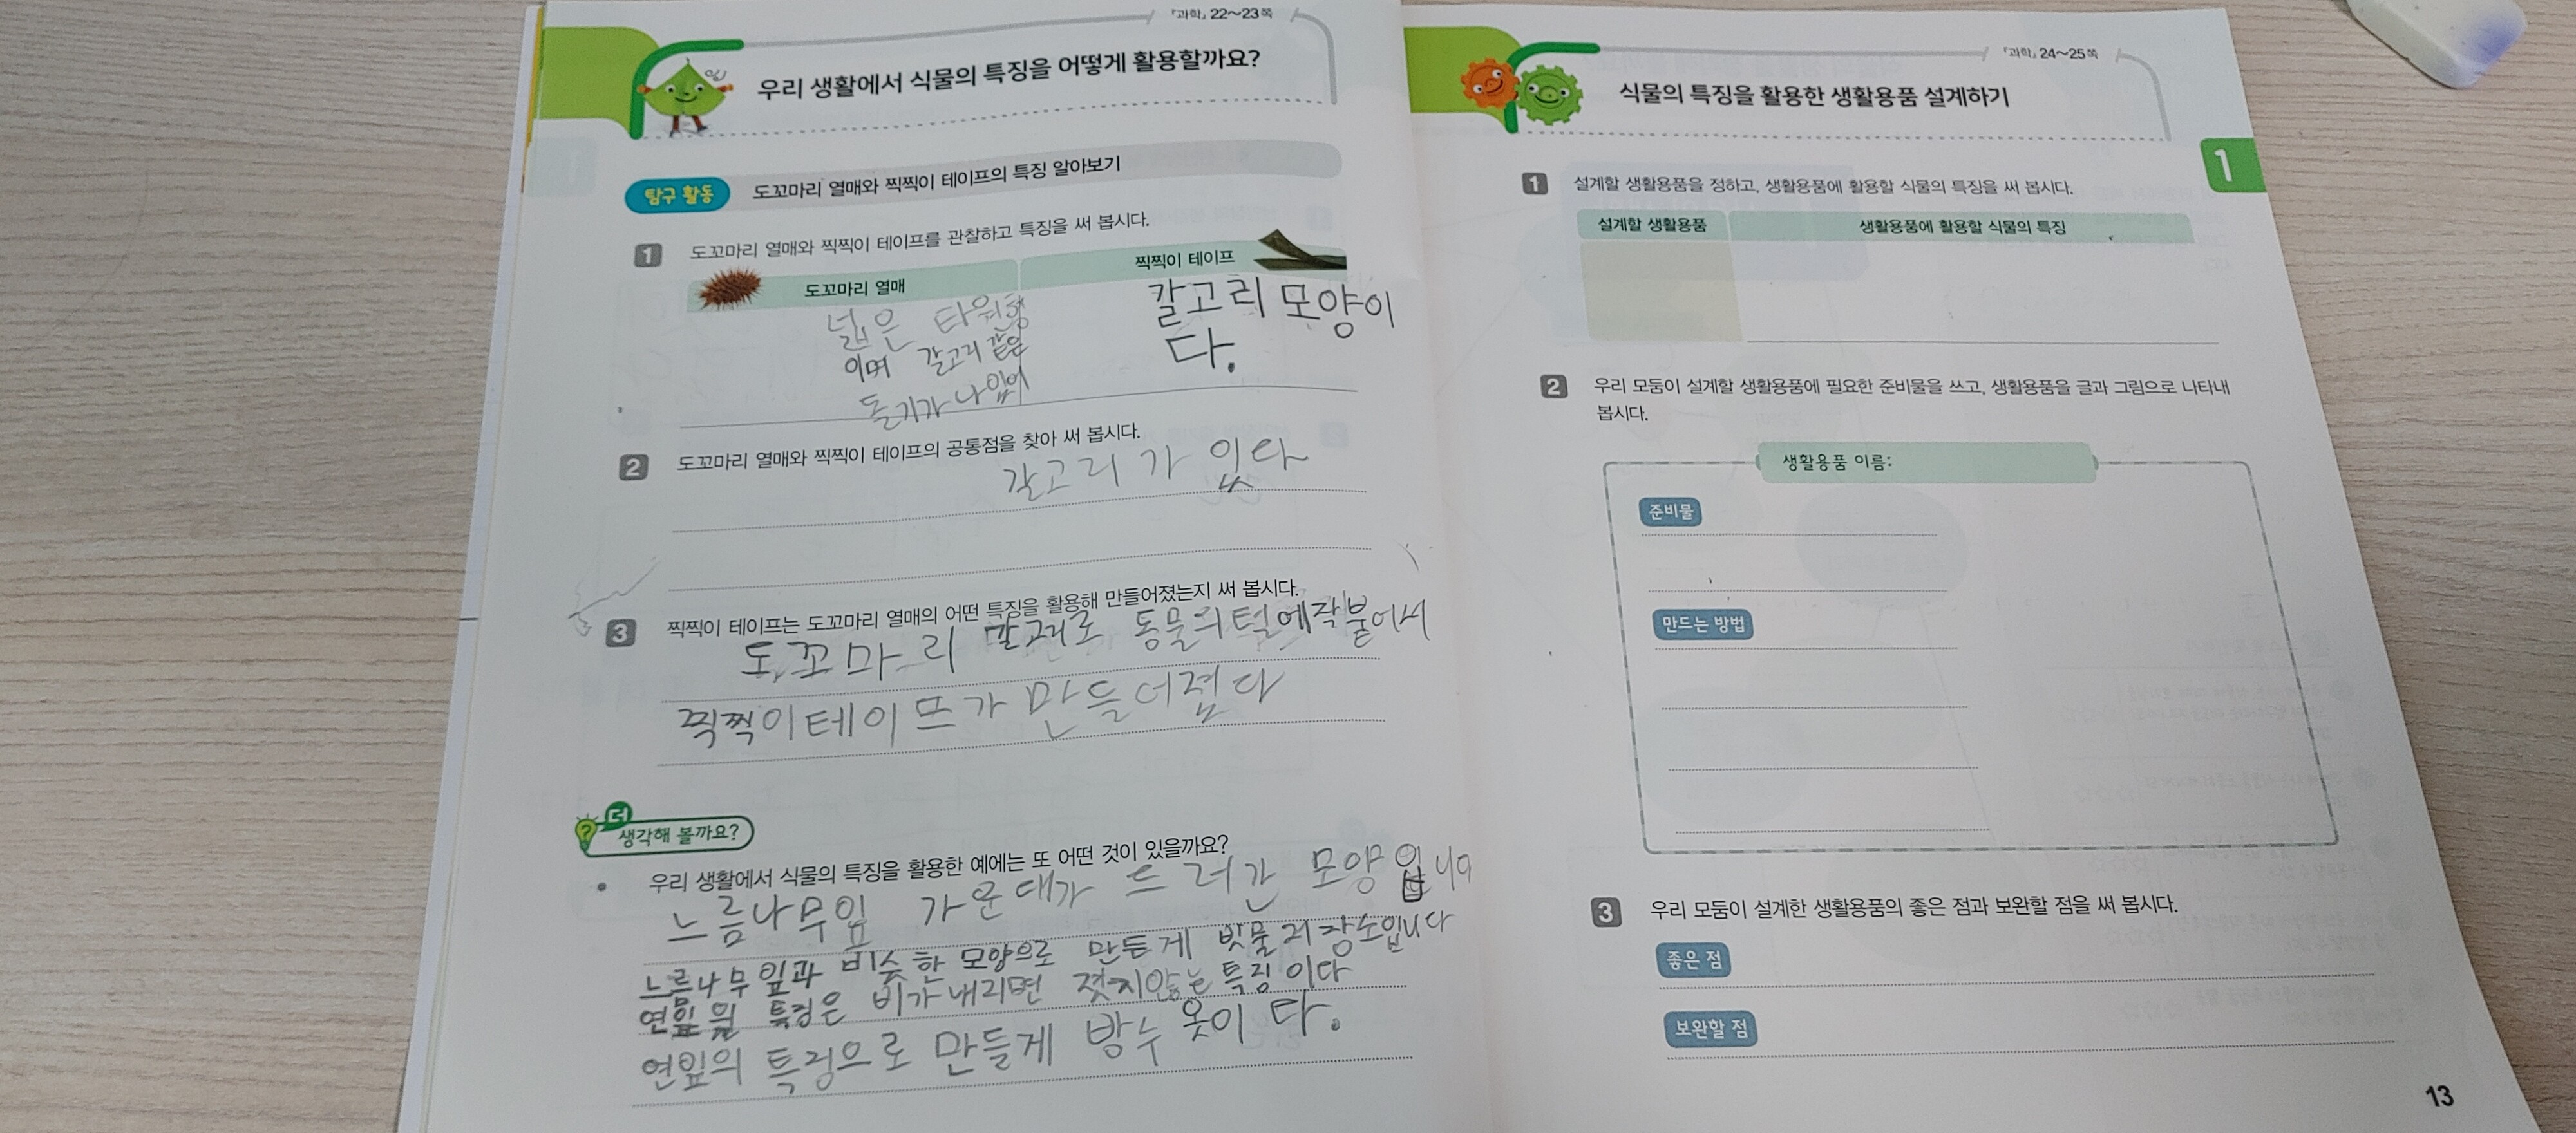 『과학』 22~23쪽
우리 생활에서 식물의 특징을 어떻게 활용할까요?
탐구 활동 도꼬마리 열매와 찍찍이 테이프의 특징 알아보기
1 도꼬마리 열매와 찍찍이 테이프를 관찰하고 특징을 써 봅시다.
도꼬마리 열매 찍찍이 테이프
넓은 타원형
이며 갈고리 같은
돌기가 나있어
갈고리 모양이
다.
2 도꼬마리 열매와 찍찍이 테이프의 공통점을 찾아 써 봅시다.
갈고리가 있다
3 찍찍이 테이프는 도꼬마리 열매의 어떤 특징을 활용해 만들어졌는지 써 봅시다.
도꼬마리 갈고리로 동물의털에작붙어서
찍찍이테이프가 만들어졌다
더 생각해 볼까요?
• 우리 생활에서 식물의 특징을 활용한 예에는 또 어떤 것이 있을까요?
느름나무잎 가운대가 드러간 모양입니다
느름나무잎과 비슷한 모양으로 만든게 빗물저장소입니다
연잎의 특징은 비가내리면 젖지않는특징이다
연잎의 특징으로 만들게 방수 옷이다.
『과학』 24~25쪽
식물의 특징을 활용한 생활용품 설계하기
1
1 설계할 생활용품을 정하고, 생활용품에 활용할 식물의 특징을 써 봅시다.
설계할 생활용품 생활용품에 활용할 식물의 특징
2 우리 모둠이 설계할 생활용품에 필요한 준비물을 쓰고, 생활용품을 글과 그림으로 나타내
봅시다.
생활용품 이름:
준비물
만드는 방법
3 우리 모둠이 설계한 생활용품의 좋은 점과 보완할 점을 써 봅시다.
좋은 점
보완할 점
13